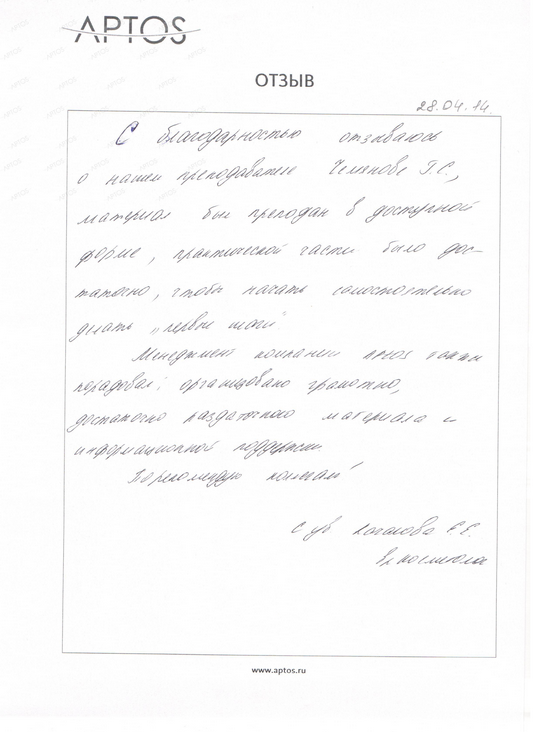 APTOS
ОТЗЫВ
28.04.14.
С благодарностью отзываюсь
о нашем преподавателе Г.С.,
материал был преподан в доступной
форме, практической части было дос-
таточно, чтобы начать самостоятельно
делать „первые шаги"
Менеджмент компании Aptos также
порадовал: организовано грамотно,
достаточно раздаточного материала и
информационной поддержки.
Порекомендую коллегам!
С ув Е.Е.
www.aptos.ru